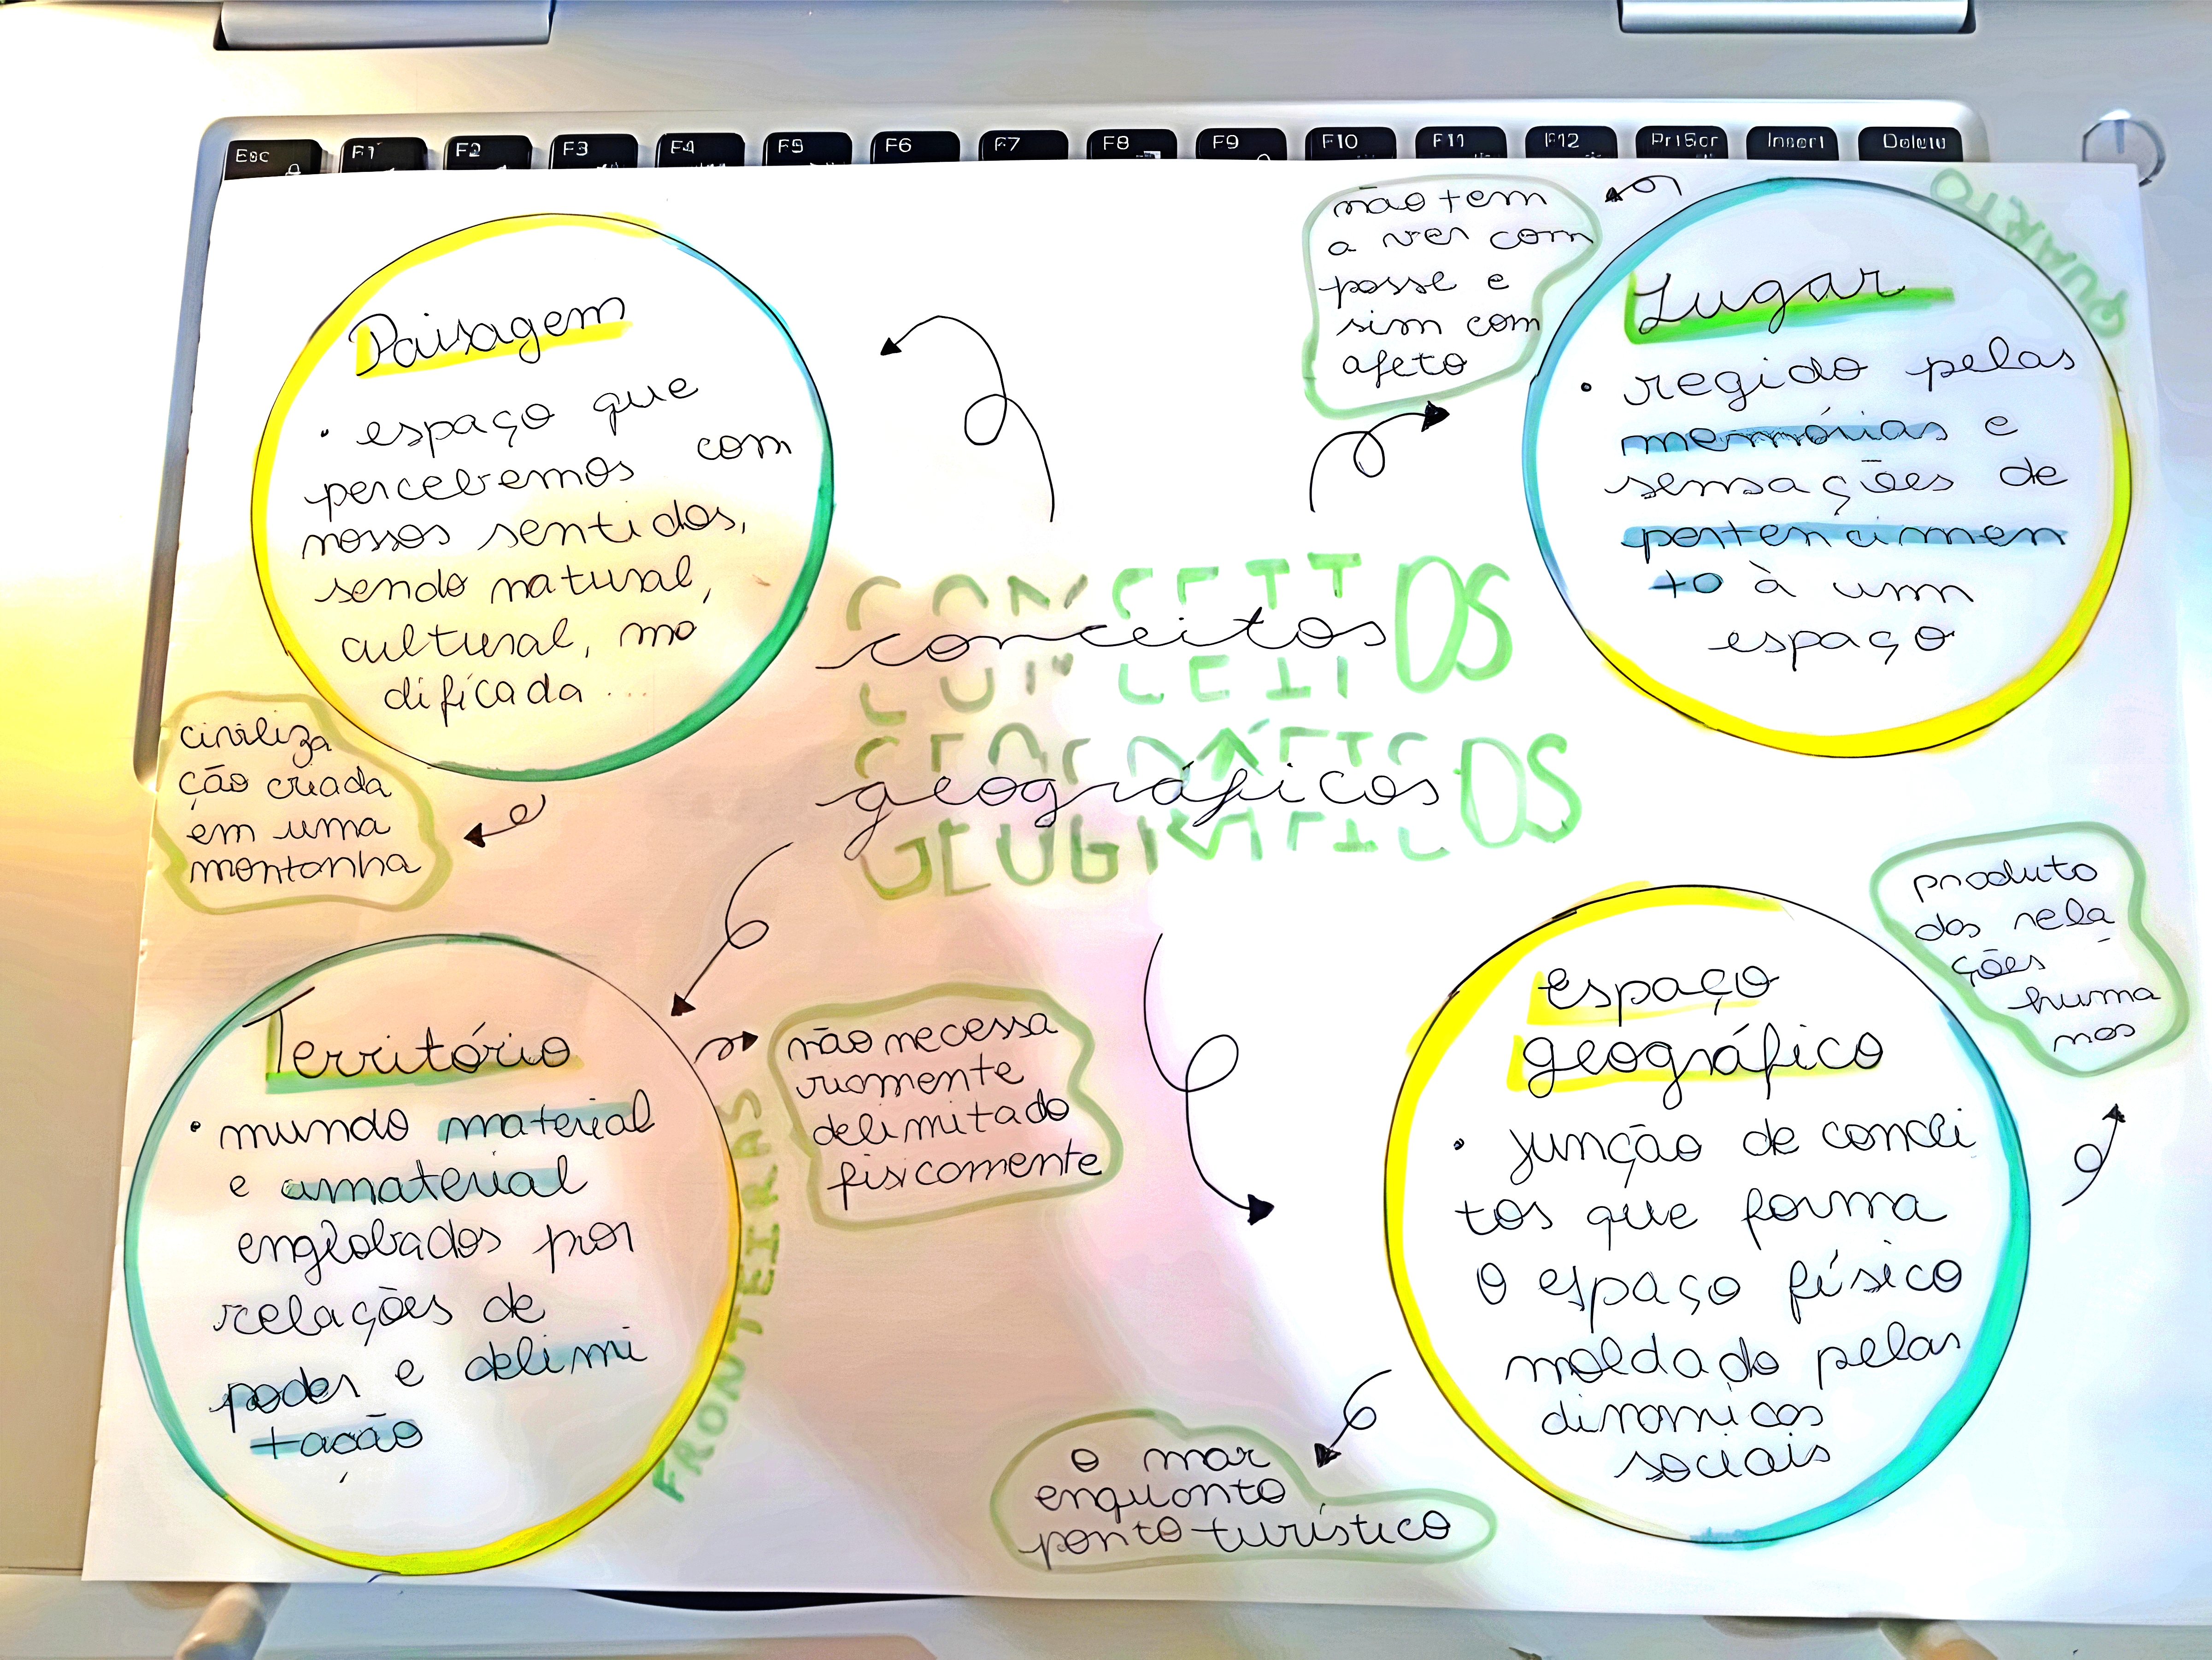 Esc F1 F2 F3 F4 F5 F6 F7 F8 F9 F10 F11 F12 PrtScr Insert Delete
Paisagem
• espaço que
percebemos com
nossos sentidos,
sendo natural,
cultural, mo
dificada ...
civiliza
ção criada
em uma
montanha
não tem
a ver com
posse e
sim com
afeto
Lugar
• regido pelas
memórias e
sensações de
pertencimen
to à um
espaço
QUARTO
CONCEITOS
conceitos
GEOGRÁFICOS
geográficos
Território
• mundo material
e amaterial
englobados por
relações de
poder e delimi
tação
FRONTEIRAS
não necessa
riamente
delimitado
fisicamente
espaço
geográfico
• junção de concei
tos que forma
o espaço físico
moldado pelas
dinamicas
sociais
produto
das rela
ções
huma
nas
o mar
enquanto
ponto turístico